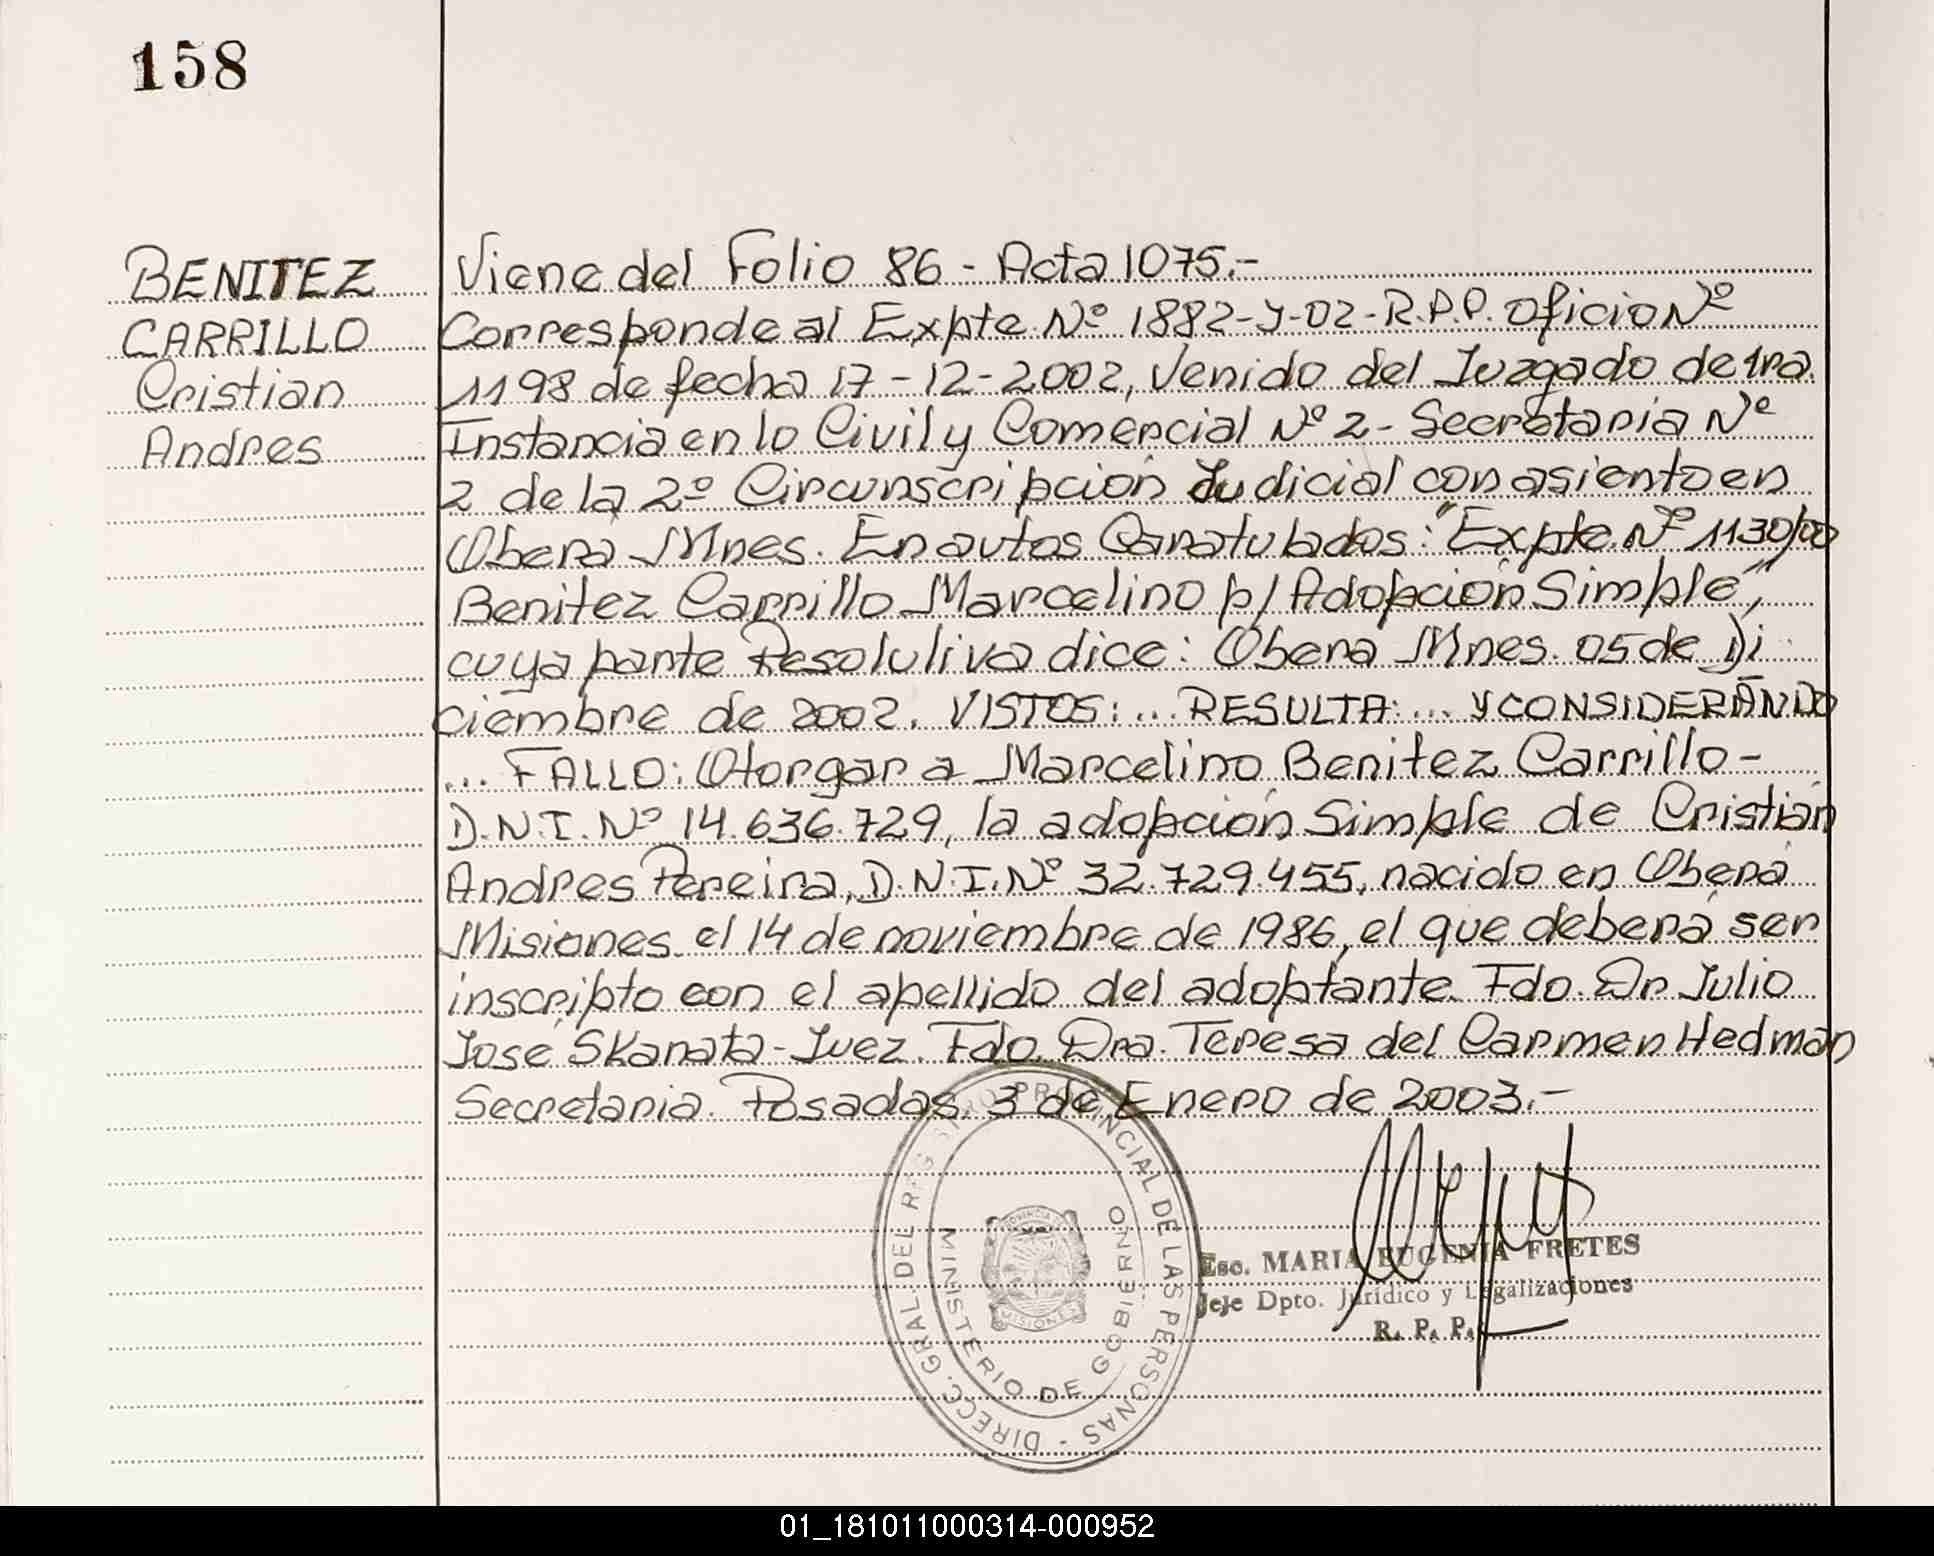 158
BENITEZ
CARRILLO
Cristian
Andres
Viene del Folio 86 - Acta 1075.-
Corresponde al Expte. Nº 1882-Y-02-R.P.P. Oficio Nº
1198 de fecha 17-12-2002, Venido del Juzgado de 1ra.
Instancia en lo Civil y Comercial Nº 2 - Secretaria Nº
2 de la 2º Circunscripción Judicial con asiento en
Obera Mnes. En autos Caratulados: "Expte. Nº 1130/00
Benitez Carrillo Marcelino p/ Adopción Simple",
cuya parte Resolutiva dice: Obera Mnes. 05 de Di
ciembre de 2002. VISTOS: ... RESULTA: ... Y CONSIDERANDO
... FALLO: Otorgar a Marcelino Benitez Carrillo -
D.N.I. Nº 14.636.729, la adopción Simple de Cristian
Andres Pereira, D.N.I. Nº 32.729.455, nacido en Oberá
Misiones el 14 de noviembre de 1986, el que deberá ser
inscripto con el apellido del adoptante. Fdo. Dr Julio
José Skanata - Juez. Fdo. Dra. Teresa del Carmen Hedman
Secretaria. Posadas, 3 de Enero de 2003.-
DIRECC. GRAL. DEL REGISTRO PROVINCIAL DE LAS PERSONAS -
MINISTERIO DE GOBIERNO
PROVINCIA DE
MISIONES
Esc. MARIA EUGENIA FRETES
Jefe Dpto. Jurídico y Legalizaciones
R. P. P.
01_181011000314-000952